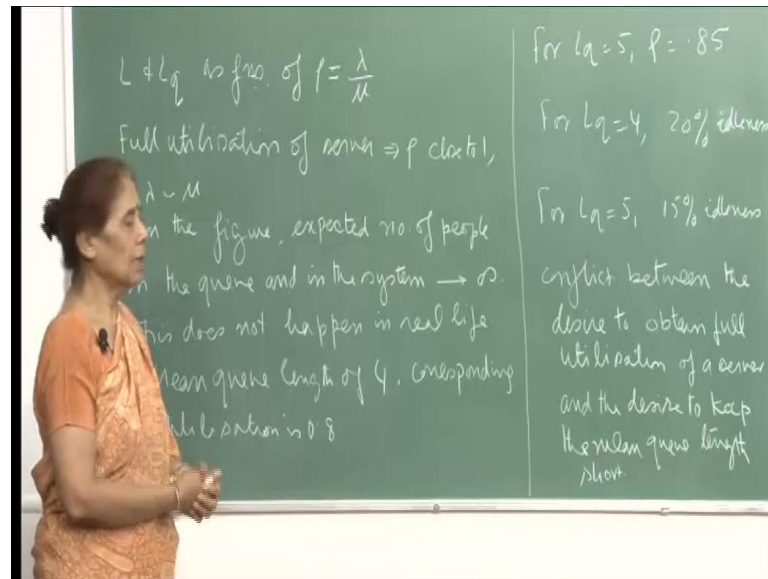 L & Lq as fns. of ρ = λ/μ
Full utilisation of server ⇒ ρ close to 1,
λ ~ μ
n the figure, expected no. of people
n the queue and in the system → ∞.
his does not happen in real life
mean queue length of 4, corresponding
utilisation is 0.8
For Lq = 5, ρ = .85
For Lq = 4, 20% idleness
For Lq = 5, 15% idleness
conflict between the
desire to obtain full
utilisation of a server
and the desire to keep
the mean queue length
short.